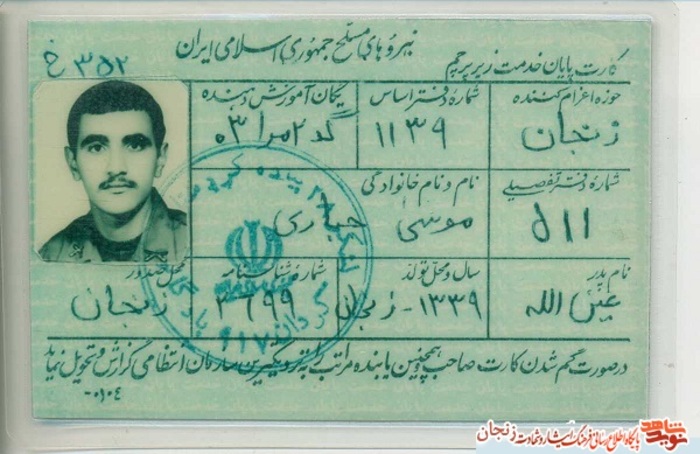 نیروهای مسلح جمهوری اسلامی ایران
کارت پایان خدمت زیر پرچم
خ ۳۵۲
حوزه اعزام کننده
زنجان
شماره دفتر اساس
۱۱۳۹
یگان آموزش دهنده
شماره دفتر تفصیلی
۵۱۱
نام و نام خانوادگی
موسی
نام پدر
عین الله
سال و محل تولد
۱۳۳۹ - زنجان
شماره شناسنامه
محل صدور
زنجان
در صورت گم شدن کارت صاحب و همچنین یابنده مراتب را به نزدیکترین سازمان انتظامی گزارش و تحویل نماید
نوید شاهد
پایگاه اطلاع رسانی فرهنگ ایثار و شهادت زنجان